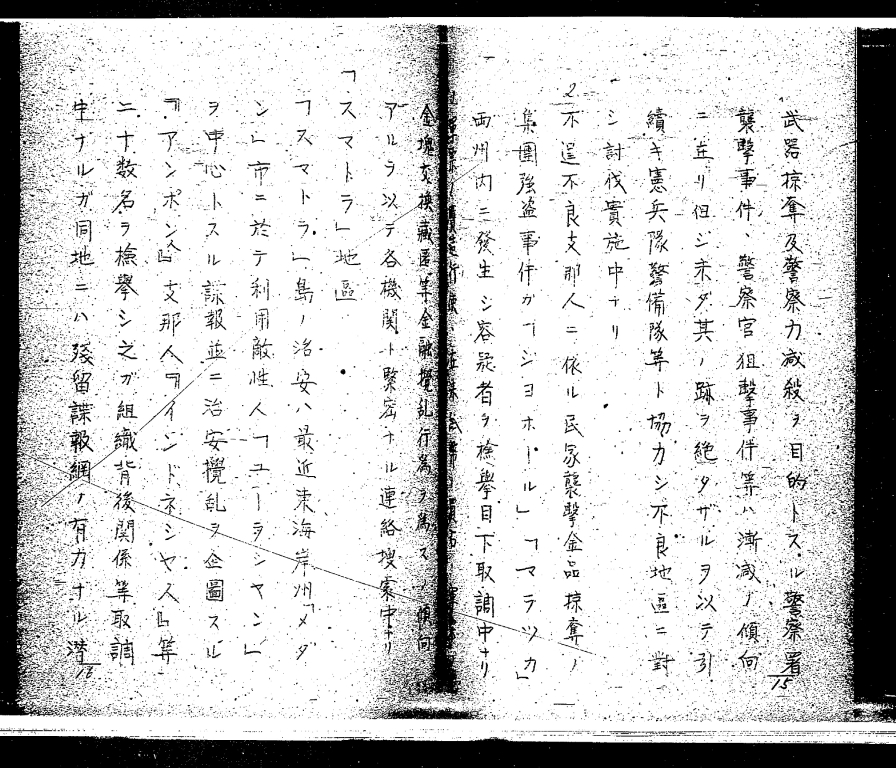 武器掠奪及警察力減殺ヲ目的トスル警察署
襲撃事件、警察官狙撃事件等ハ漸減ノ傾向
ニ在リ但シ未ダ其ノ跡ヲ絶タザルヲ以テ引
續キ憲兵隊警備隊等ト協力シ不良地區ニ對
シ討伐實施中ナリ
2 不逞不良支那人ニ依ル民家襲撃金品掠奪ノ
集團強盗事件ガ「ジヨホール」「マラツカ」
両州内ニ發生シ容疑者ヲ檢擧目下取調中ナリ
15
金塊交換藏匿等金融攪乱行為ヲ為スノ傾向
アルヲ以テ各機關ト緊密ナル連絡捜索中ナリ
「スマトラ」地區
「スマトラ」島ノ治安ハ最近東海岸州「メダ
ン」市ニ於テ利用敵性人「ユーラシヤン」
ヲ中心トスル諜報並ニ治安攪乱ヲ企圖スル
『アンボン人』支那人『インドネシヤ人』等
二十数名ヲ檢擧シ之ガ組織背後関係等取調
中ナルガ同地ニハ残留諜報網ノ有力ナル潜
16